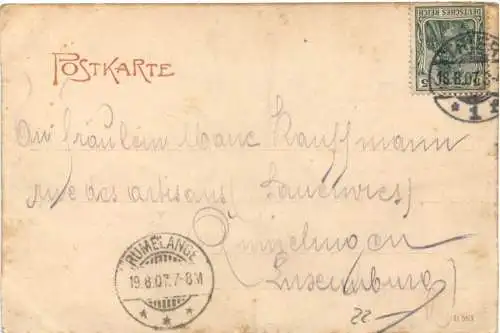 POSTKARTE
DEUTSCHES REICH
5
18.8.07.
* 1
An Fräulein Marie Kauffmann
rue des artisans
Rumelingen
(Luxemburg)
RÜMELANGE
19.8.07. 7-8 M
* * *
22